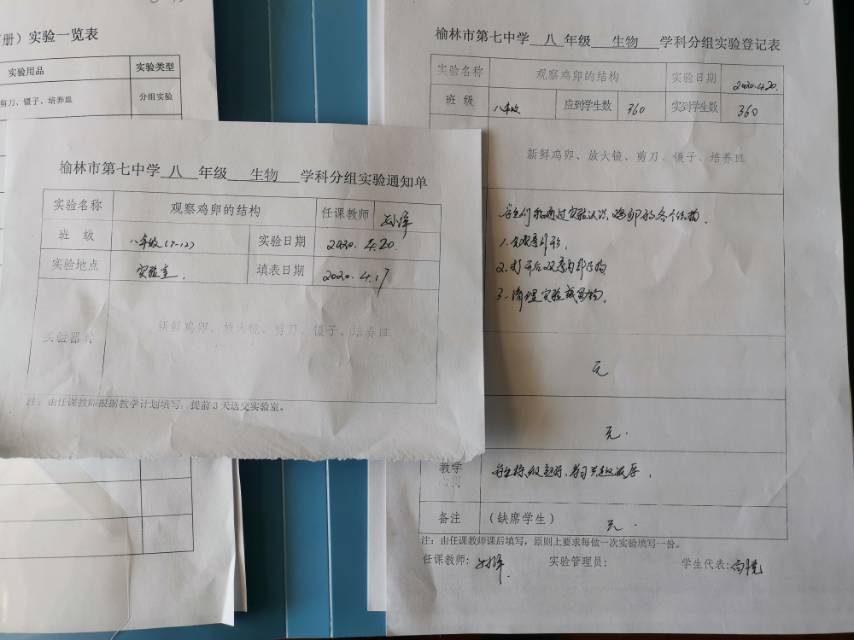 册）实验一览表
实验用品
实验类型
剪刀、镊子、培养皿
分组实验
榆林市第七中学 八 年级 生物 学科分组实验通知单
实验名称 观察鸡卵的结构 任课教师
班 级 八年级(7-12) 实验日期 2020.4.20
实验地点 实验室 填表日期 2020.4.17
实验器材 新鲜鸡卵、放大镜、剪刀、镊子、培养皿
注：由任课教师根据教学计划填写，提前3天送交实验室。
榆林市第七中学 八 年级 生物 学科分组实验登记表
实验名称 观察鸡卵的结构 实验日期 2020.4.20.
班 级 八年级 应到学生数 360 实到学生数 360
新鲜鸡卵、放大镜、剪刀、镊子、培养皿
学生们能通过实验认识鸡卵的各个结构.
1.观察卵形.
2.打开后观察内部结构
3.清理实验
无
无.
教学
备注 (缺席学生) 无.
注：由任课教师课后填写，原则上要求每做一次实验填写一份。
任课教师: 实验管理员: 学生代表: